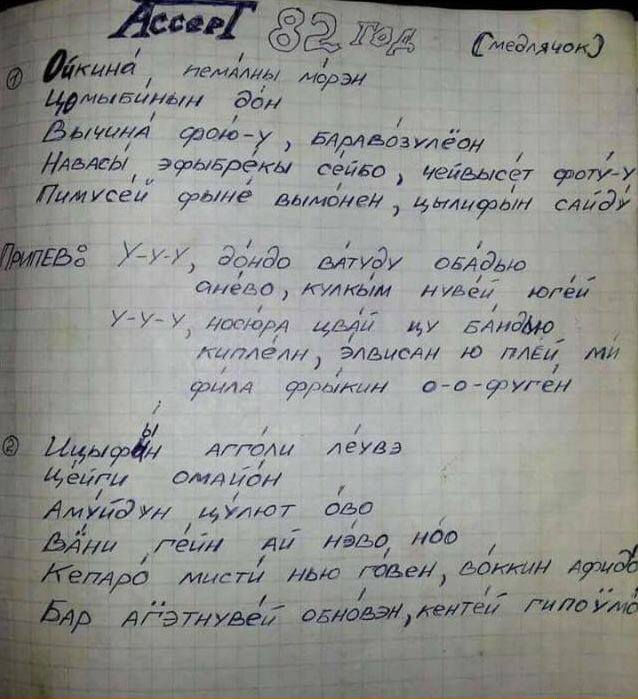 АссерТ 82 год (медлячок)
① Ойкина́, пема́лны мо́рэн
Цомыби́нын до́н
Вычина́ фою́-у, бараво́зулёон
Навасы́, эфыбре́кы се́йбо, чейвысе́т фоту́-у
Пимусе́й фыне́ вымо́нен, цылифы́н сайду́
Припев: У-у-у, до́ндо ва́туду оба́дью
ане́во, кулкы́м нуве́й юге́й
У-у-у, носю́ра цва́й цу ба́ндью
кипле́лн, э́лвисан ю пле́й ми
фи́ла фры́кин о-о-фуге́н
② Ицыфы́н агго́ли ле́увэ
Це́йги омайо́н
Аму́йдун цу́лют о́во
Ва́ни ге́йн ай нэ́во, но́о
Кепаро́ мисти́ нью го́вен, во́ккин
Бар аг̈э́тнуве́й обно́вэн, кенте́й гипоӱмо́